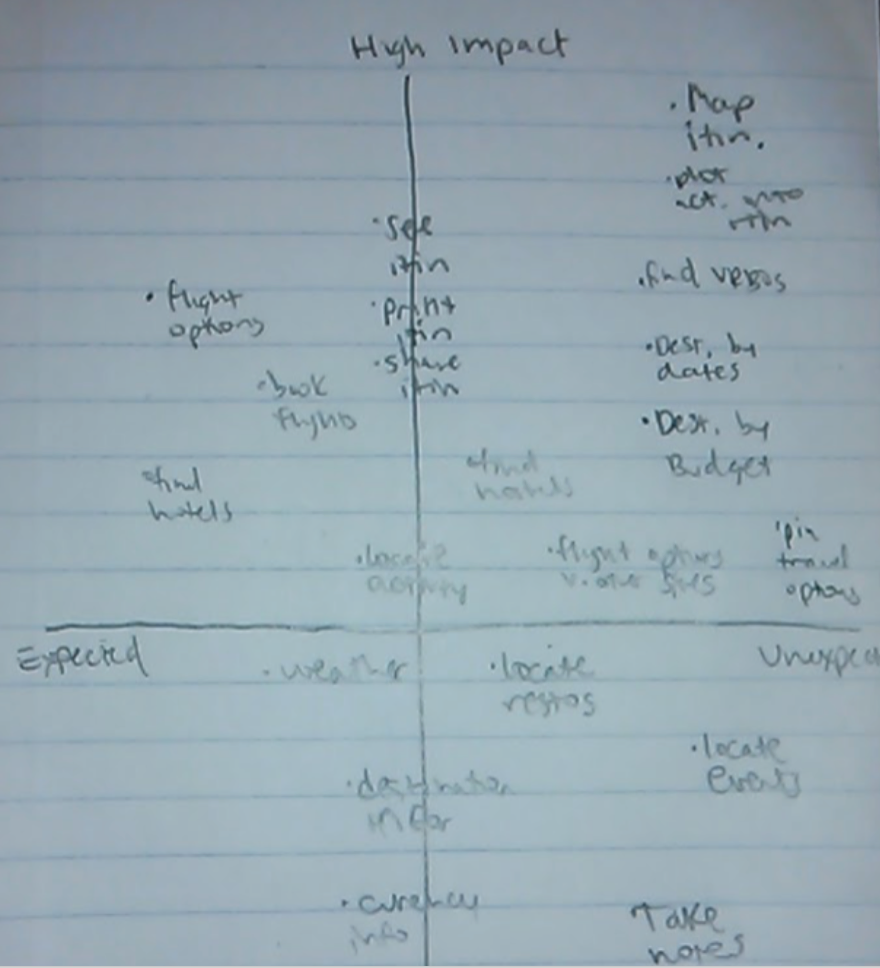 High Impact
• Map
itin.
• plot
act. onto
itin
• see
itin
• find VRBOs
• flight
options
• print
itin
• share
itin
• Dest. by
dates
• book
flights
• Dest. by
Budget
• find
hotels
• find
hotels
• locate
activity
• flight options
v. other sites
• pin
travel
options
Expected
Unexpec
• weather
• locate
restos
• locate
events
• destination
infor
• curency
info
Take
notes